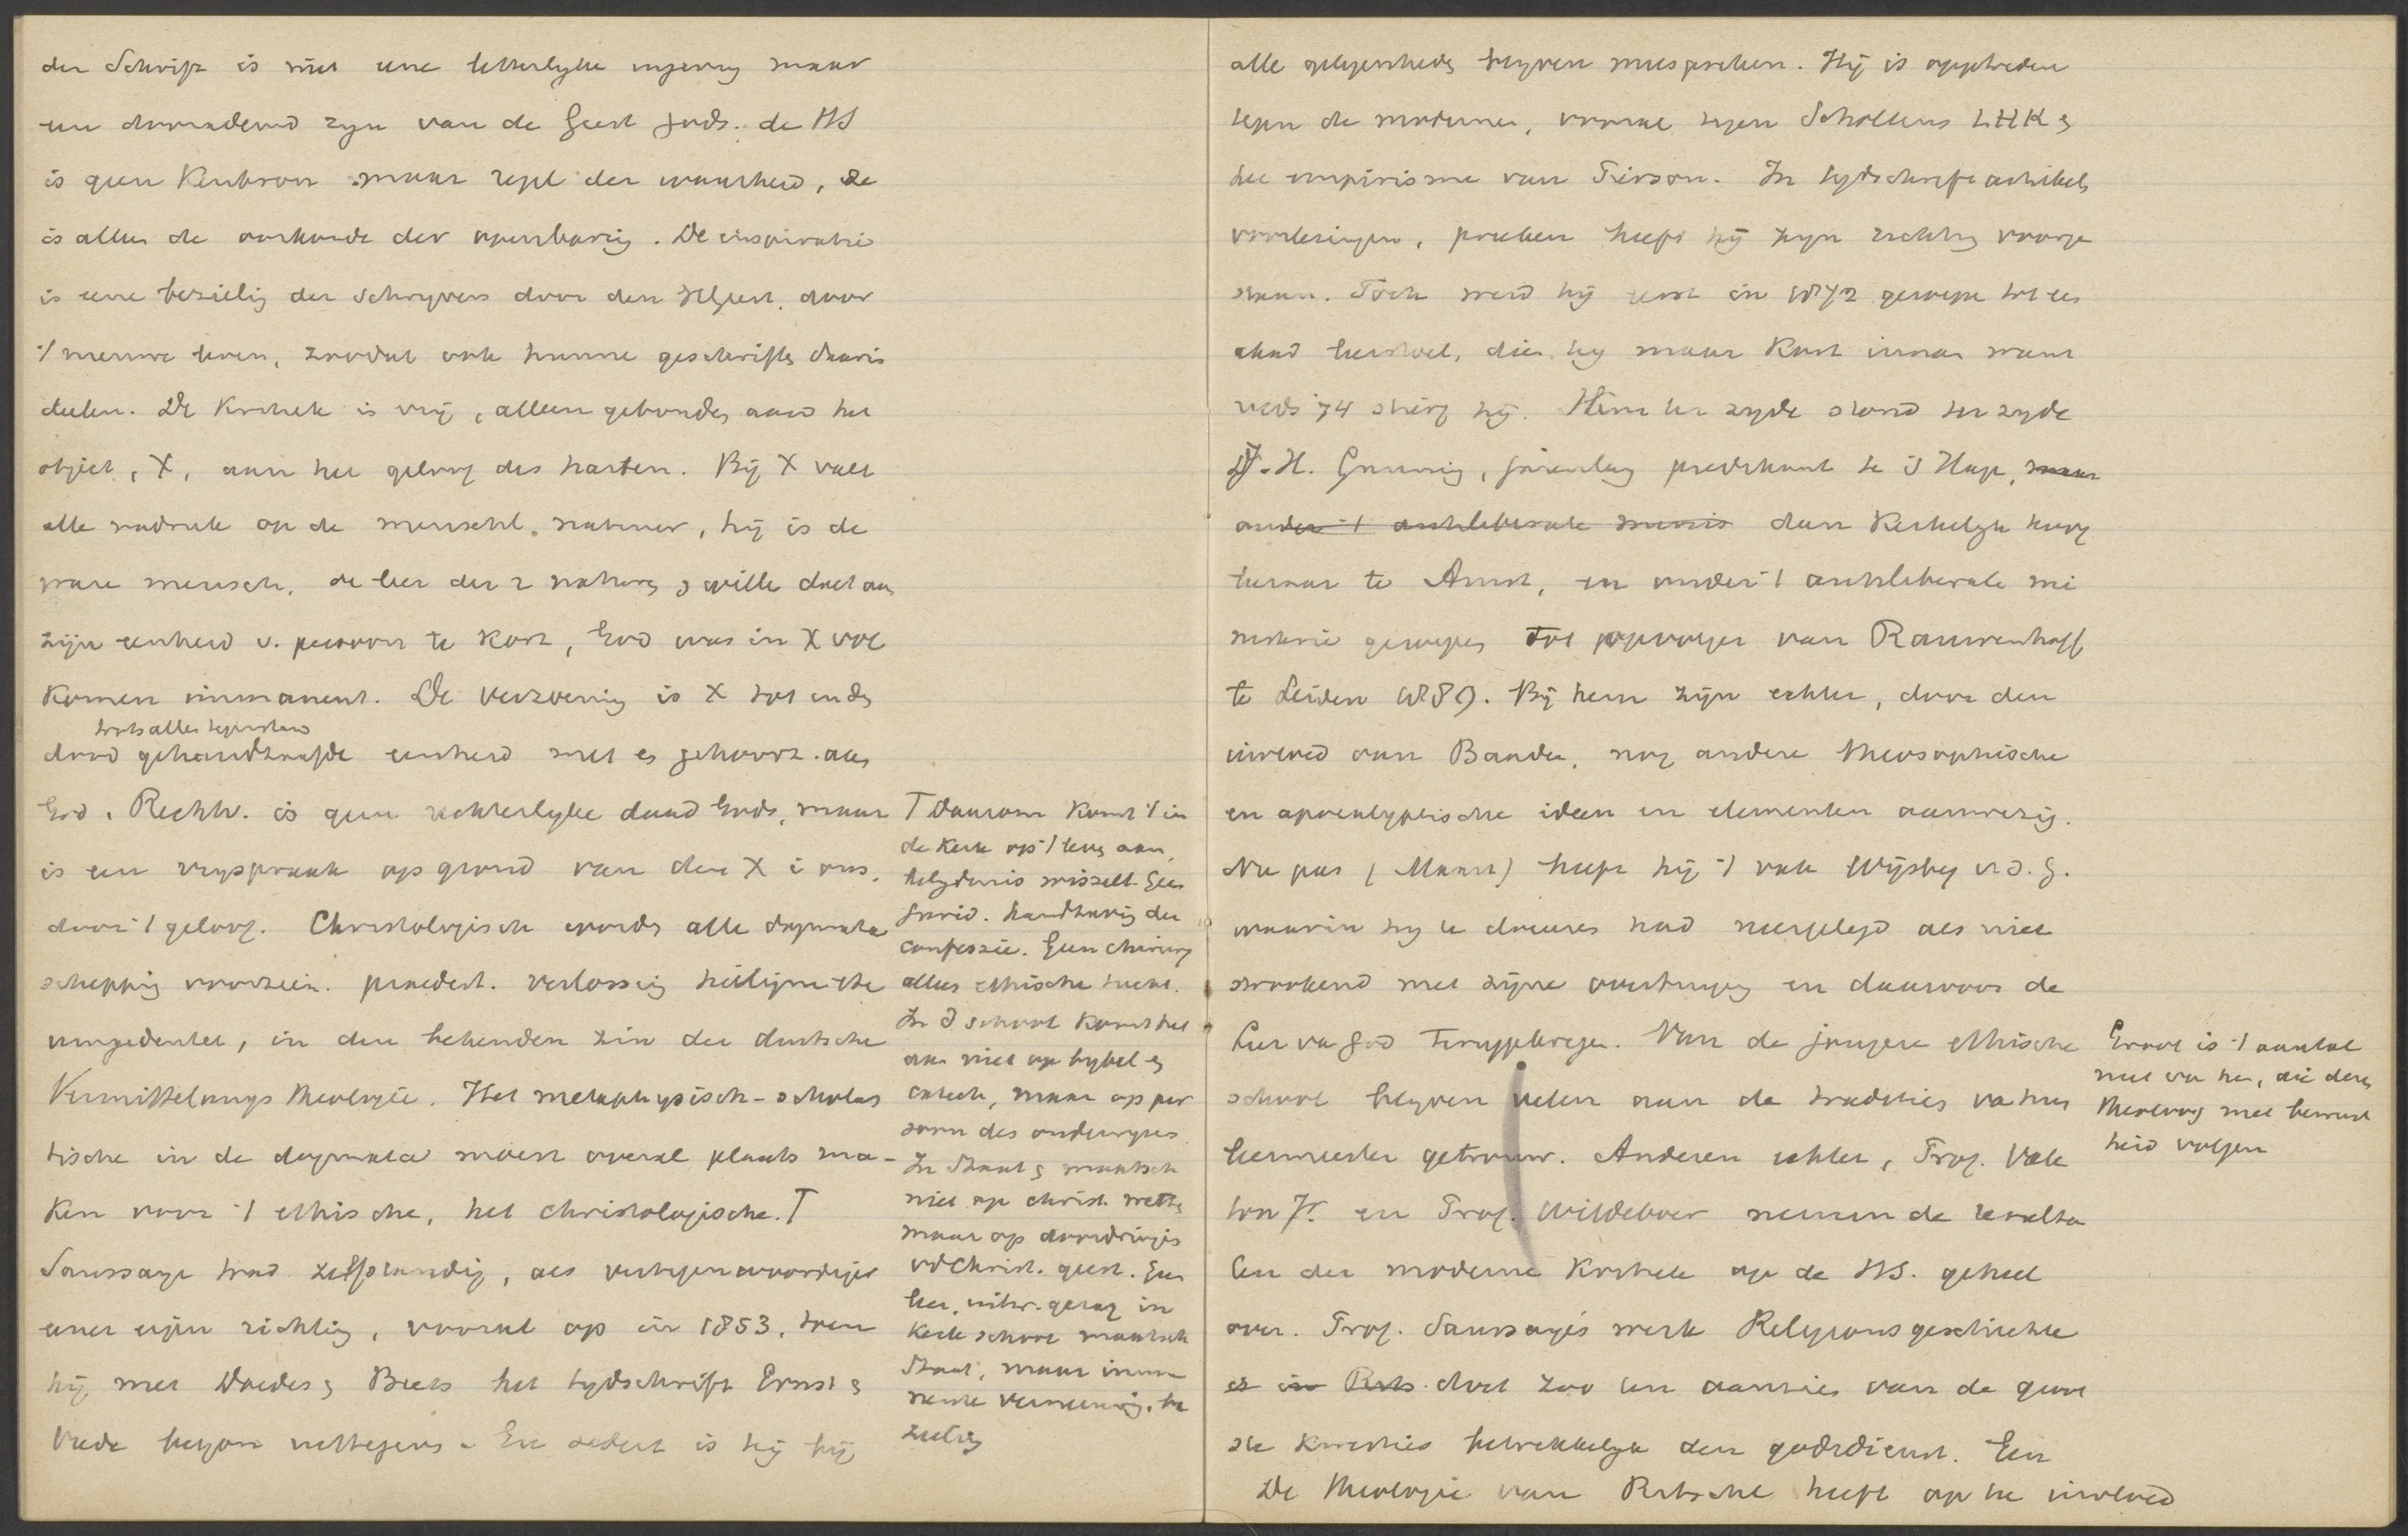 der Schrift is niet eene letterlyke ingeving maar
een doorademd zyn van de Geest Gods. de HS
is geen Kenbron maar regel der waarheid, ze
is alleen de oorkonde der openbaring. De inspiratie
is eene bezieling der schryvers door den HGeest, door
't nieuwe leven, zoodat ook hunne geschriften daarin
deelen. De Kritiek is vrij, alleen gebonden aan het
object, X, aan het geloof des harten. Bij X valt
alle nadruk op de menschl. natuur, hij is de
ware mensch, de leer der 2 naturen & willen doet aan
zijn eenheid v. persoon te kort, God was in X vol
komen immanent. De verzoening is X tot in den
trots alle tegenstand
dood gehandhaafde eenheid met en gehoorz. aan
God. Rechtv. is geen rechterlyke daad Gods, maar
is een vryspraak op grond van den X i ons.
door 't geloof. Christologisch worden alle dogmata
schepping voorzien. praedest. verlossing heiligm. etc
umgedeutet, in den bekenden zin der duitsche
Vermittelungs theologie. Het metaphysisch-scholas
tische in de dogmata moest overal plaats ma-
ken voor 't ethische, het christologische. T
Saussaye trad zelfstandig, als vertegenwoordiger
eener eigen richting, vooral op in 1853, toen
hij met Doedes & Beets het tydschrift Ernst &
Vrede begon uittegeven. En sedert is hij bij
T Daarom komt 't in
de Kerk op 't leven aan,
belydenis wisselt. Geen
jurid. handhaving der
confessie. Geen chirurg
alleen ethische tucht.
In d school komt het
aan niet op bybel &
catech, maar op per
soon des onderwyzers.
In Staat & maatsch
niet op christ. wetten
maar op doordringen
vd Christ. geest. Geen
leer, uitw. gezag in
Kerk school maatsch
Staat, maar imma
nente vernieuwing, be
zieling
alle gelegenheden blyven meespreken. Hij is opgetreden
tegen de modernen, vooral tegen Scholtens LHK &
het empirisme van Pierson. In tydschriftartikels
voorlezingen, preeken heeft hij zyn richting voorge
staan. Toch werd hij eerst in 1872 geroepen tot een
akad leerstoel, dien hy maar kort innam want
reeds '74 stierf hij. Hem ter zyde stond ter zyde
J. H. Gunning, jarenlang predikant te 's Hage, maar
onder 't antiliberale minis dan Kerkelyk hoog
leeraar te Amst, en onder 't antiliberale mi
nisterie geroepen tot opvolger van Rauwenhoff
te Leiden 1889. Bij hem zijn echter, door den
invloed van Baader, nog andere theosophische
en apocalyptische ideen en elementen aanwezig.
Nu pas (Maart) heeft hij 't vak Wijsbeg v d. G.
waarin hy te doceeren had neergelegd als niet
strookend met zijne overtuiging en daarvoor de
Leer van God teruggekregen. Van de jongere ethische
school blyven velen aan de tradities van hun
leermeester getrouw. Anderen echter, Prof. Vale
ton Jr. en Prof. Wildeboer nemen de resulta
ten der moderne Kritiek op de HS. geheel
over. Prof. Saussaye's werk Religionsgeschichte
es in Rels. doet zoo een aantal van de gewe
ste kwesties betrekkelyk den godsdienst. Een
De theologie van Ritschl heeft op he invloed
Groot is 't aantal
niet van hen, die deze
theoloog met bewust
heid volgen